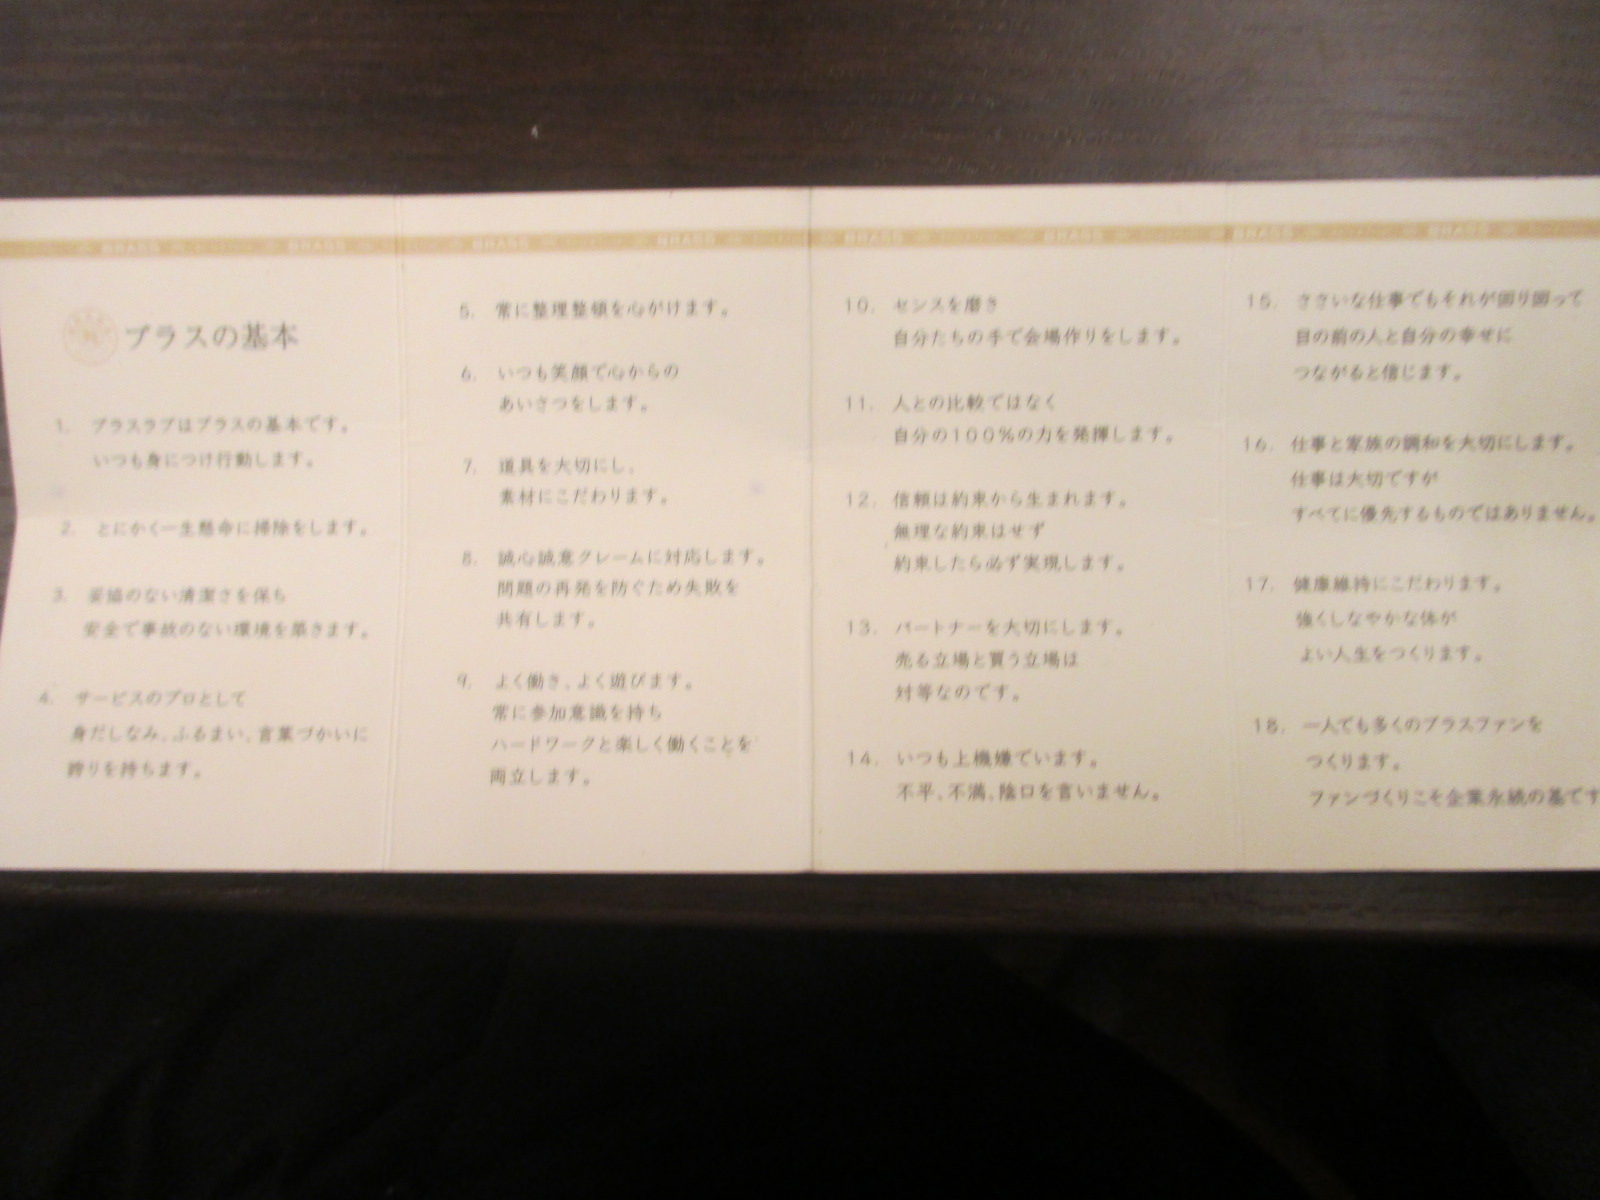 BRASS BRASS BRASS BRASS BRASS BRASS BRASS BRASS
ブラスの基本
1. ブラスラブはブラスの基本です。
いつも身につけ行動します。
2. とにかく一生懸命に掃除をします。
3. 妥協のない清潔さを保ち
安全で事故のない環境を築きます。
4. サービスのプロとして
身だしなみ、ふるまい、言葉づかいに
誇りを持ちます。
5. 常に整理整頓を心がけます。
6. いつも笑顔で心からの
あいさつをします。
7. 道具を大切にし、
素材にこだわります。
8. 誠心誠意クレームに対応します。
問題の再発を防ぐため失敗を
共有します。
9. よく働き、よく遊びます。
常に参加意識を持ち
ハードワークと楽しく働くことを
両立します。
10. センスを磨き
自分たちの手で会場作りをします。
11. 人との比較ではなく
自分の100%の力を発揮します。
12. 信頼は約束から生まれます。
無理な約束はせず
約束したら必ず実現します。
13. パートナーを大切にします。
売る立場と買う立場は
対等なのです。
14. いつも上機嫌でいます。
不平、不満、陰口を言いません。
15. ささいな仕事でもそれが回り回って
目の前の人と自分の幸せに
つながると信じます。
16. 仕事と家族の調和を大切にします。
仕事は大切ですが
すべてに優先するものではありません。
17. 健康維持にこだわります。
強くしなやかな体が
よい人生をつくります。
18. 一人でも多くのブラスファンを
つくります。
ファンづくりこそ企業永続の基です